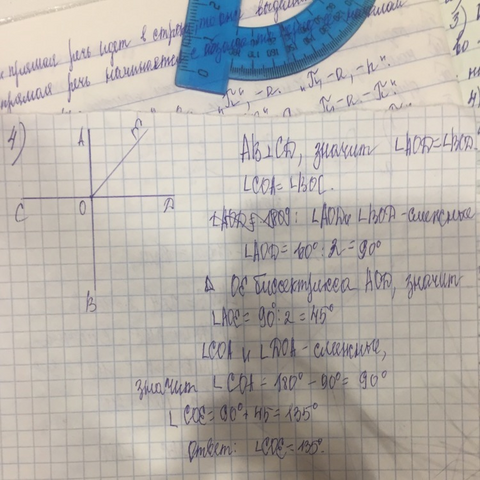 прямая речь идет в
прямая речь начинается
4)
A
E
C
O
D
B
AB⊥CD, значит ∠AOD=∠BOD.
∠COA=∠BOC.
∠AOD и ∠BOD - смежные
∠AOD=180°:2=90°
OE биссектриса AOD, значит
∠AOE=90°:2=45°
∠COA и ∠DOA - смежные,
значит ∠COA=180°-90°=90°
∠COE=90°+45=135°
Ответ: ∠COE=135°.